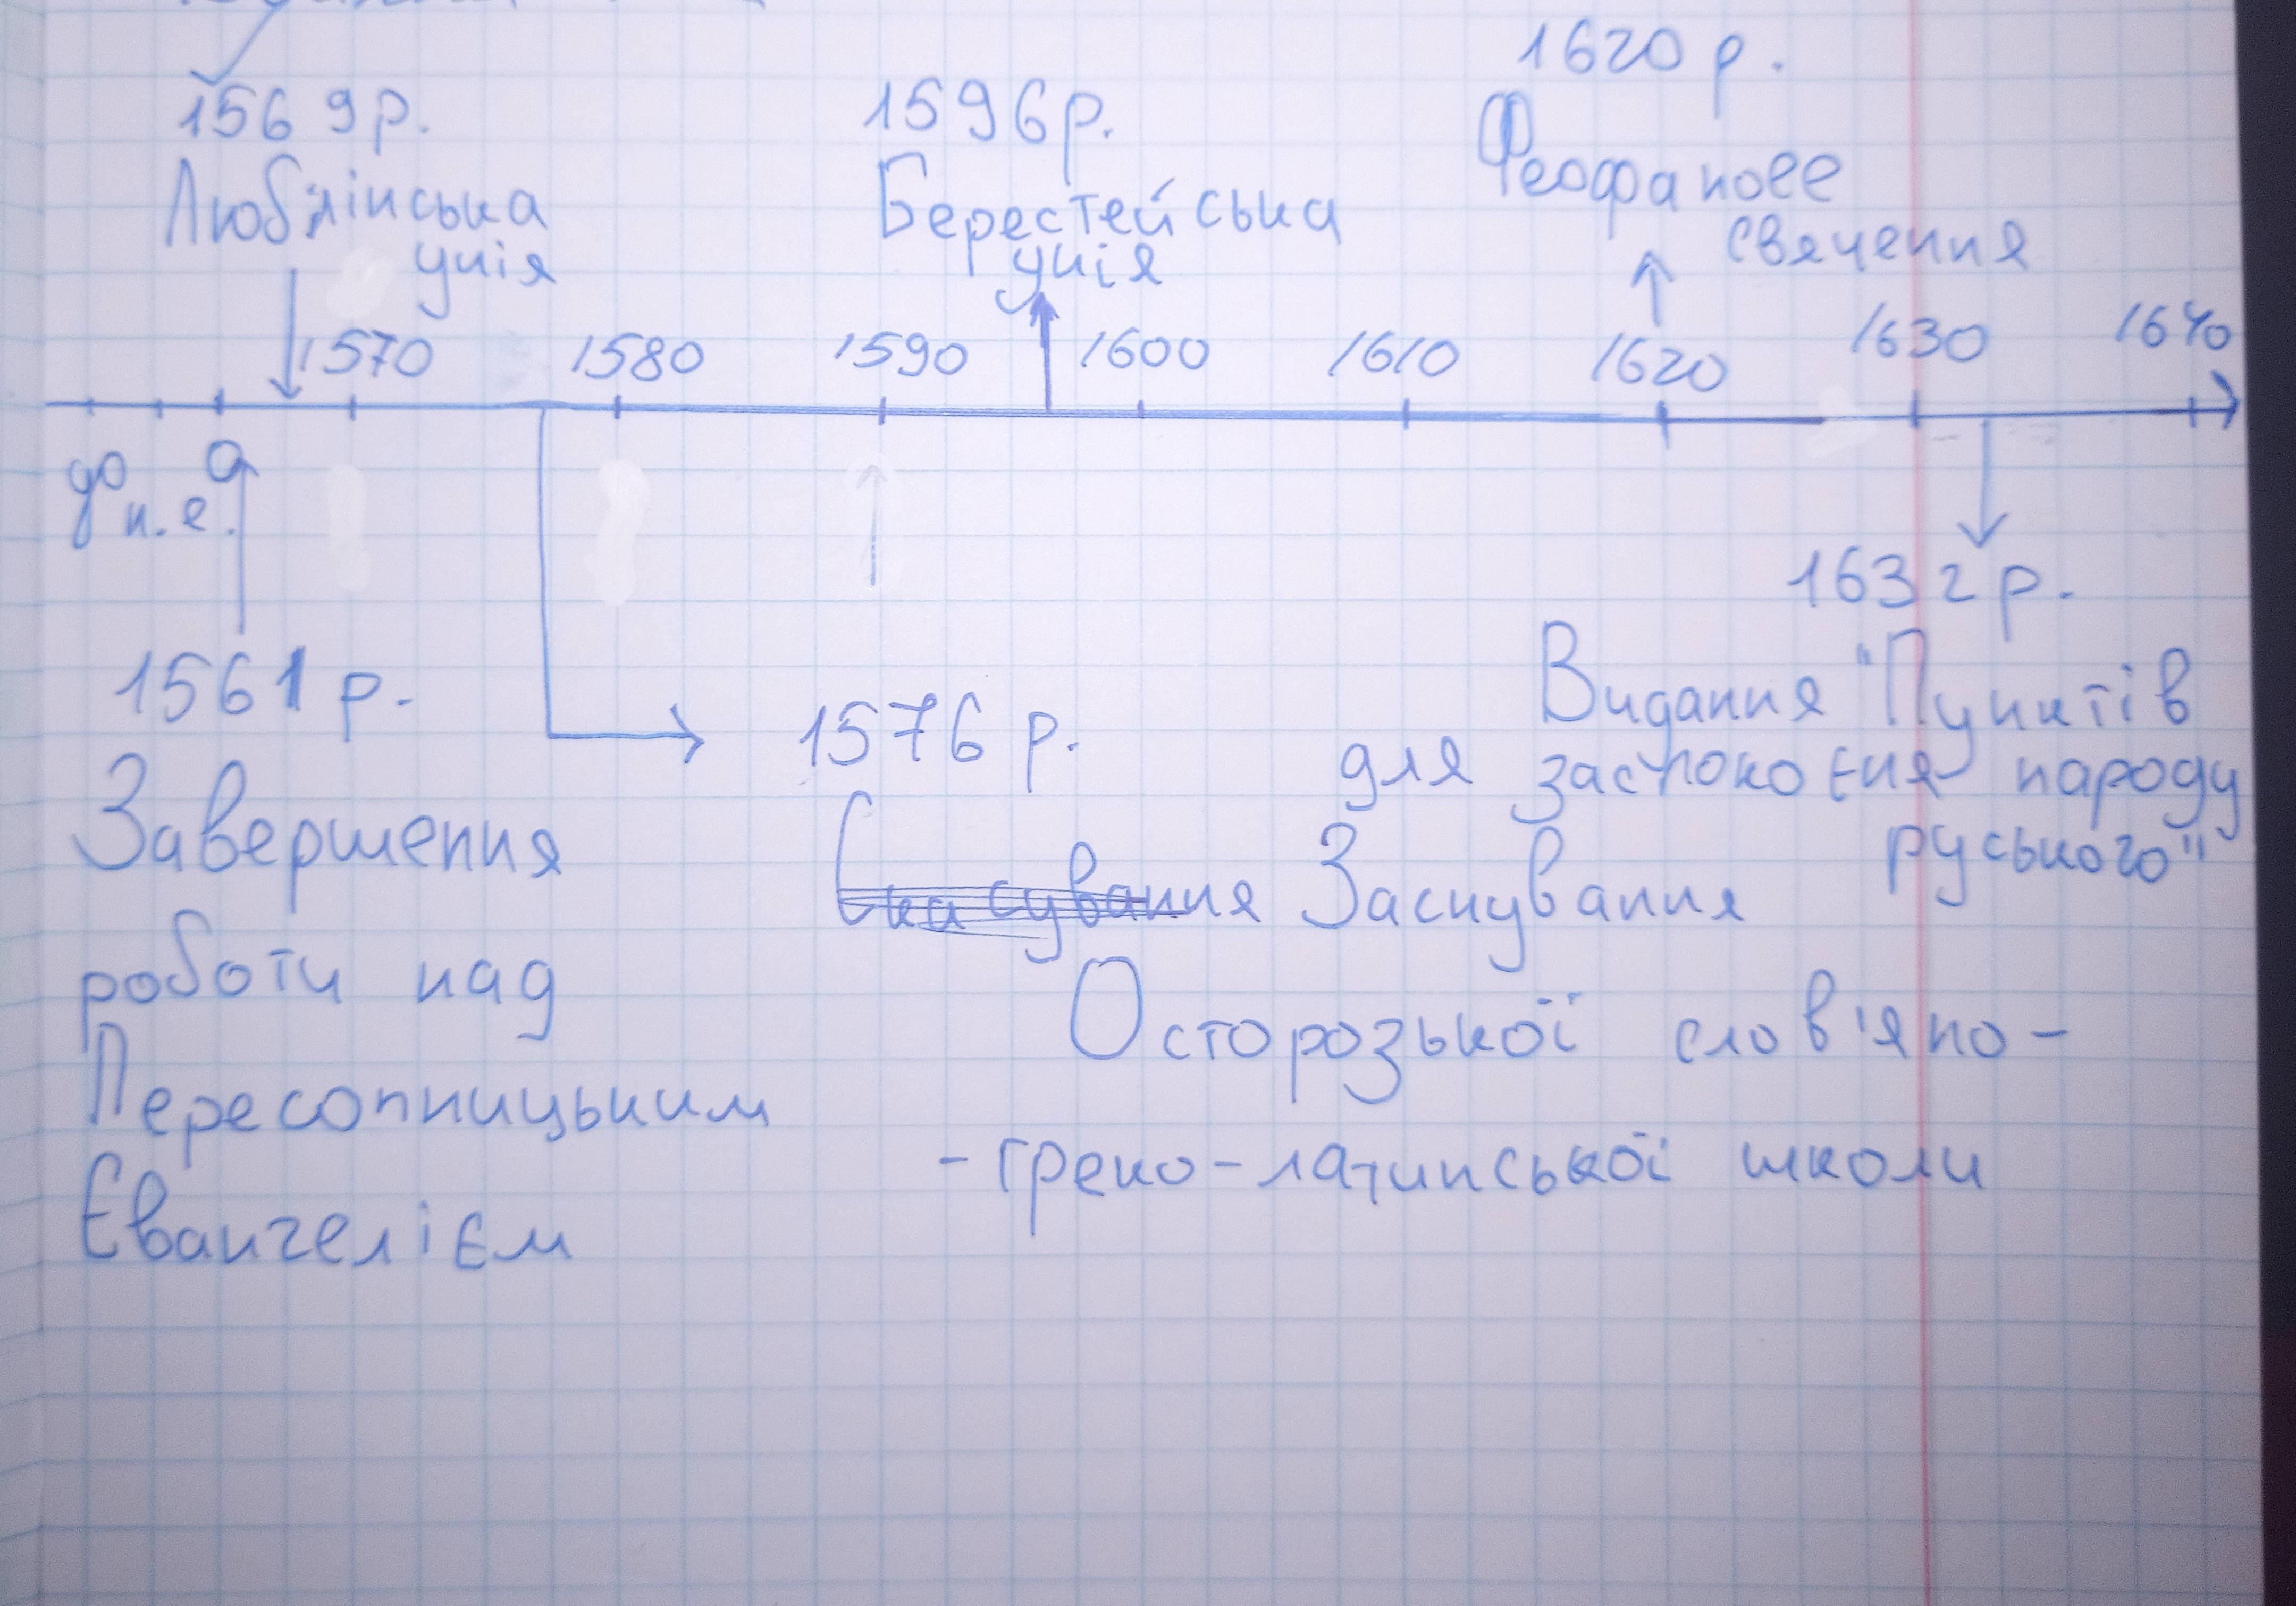 1569р.
Люблінська
унія
1596р.
Берестейська
унія
1620 р.
Феофанове
свячення
1570 1580 1590 1600 1610 1620 1630 1640
до
н.е.
0
1561 р.
Завершення
роботи над
Пересопницьким
Євангелієм
1576 р.
Скасування Заснування
Осторозької слов'яно-
-греко-латинської школи
1632 р.
Видання "Пунктів
для заспокоєня народу
руського"